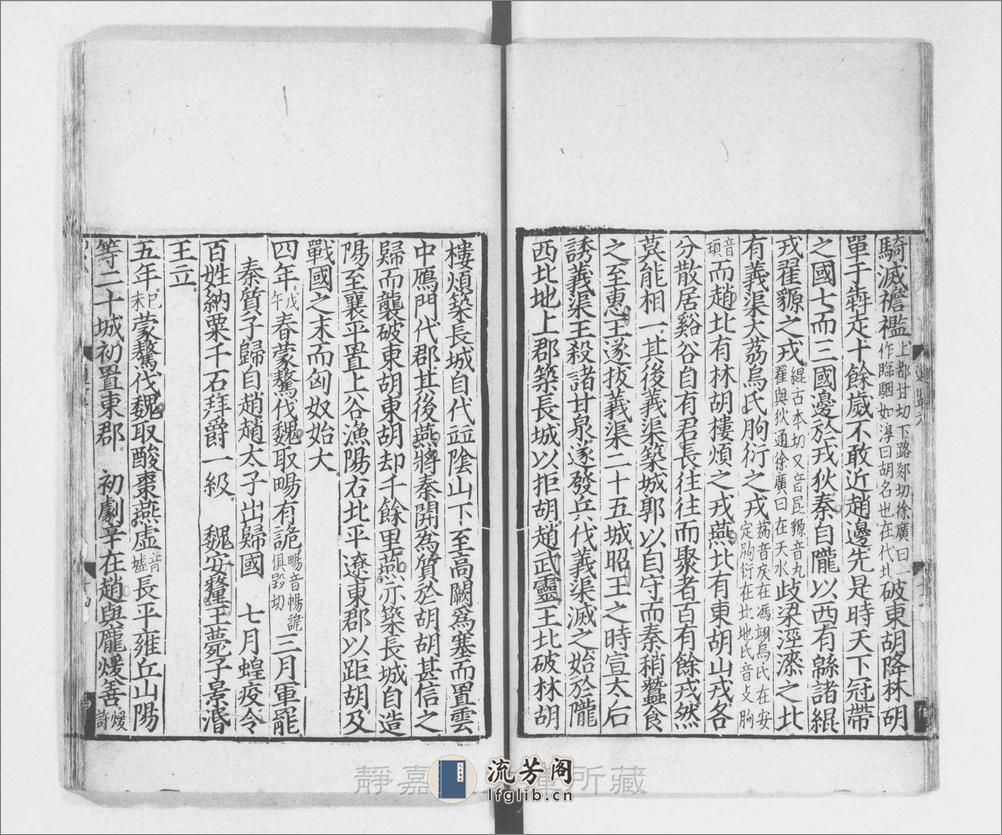 騎滅襜襤上都甘切下路郯切徐廣曰作臨駰如淳曰胡名也在代北破東胡降林胡
單于犇走十餘歲不敢近趙邊先是時天下冠帶
之國七而三國邊於戎狄秦自隴以西有緜諸緄
戎翟豲之戎緄古本切又音昆豲音丸翟與狄通徐廣曰在天水岐梁涇漆之北
有義渠大荔烏氏朐衍之戎荔音戾在馮翊烏氏在安定朐衍在北地氏音支朐
音項而趙北有林胡樓煩之戎燕北有東胡山戎各
分散居谿谷自有君長往往而聚者百有餘戎然
莫能相一其後義渠築城郭以自守而秦稍蠶食
之至惠王遂拔義渠二十五城昭王之時宣太后
誘義渠王殺諸甘泉遂發兵伐義渠滅之始於隴
西北地上郡築長城以拒胡趙武靈王北破林胡
樓煩築長城自代並陰山下至高闕爲塞而置雲
中鴈門代郡其後燕將秦開為質於胡胡甚信之
歸而襲破東胡東胡却千餘里燕亦築長城自造
陽至襄平置上谷漁陽右北平遼東郡以距胡及
戰國之末而匈奴始大
四年戊午春蒙驁伐魏取畼有詭畼音暢詭俱毀切三月軍罷
秦質子歸自趙趙太子出歸國 七月蝗疫令
百姓納粟千石拜爵一級 魏安釐王薨子景湣
王立
五年己未蒙驁伐魏取酸棗燕虛音墟長平雍丘山陽
等二十城初置東郡 初劇辛在趙與龐煖善煖許
靜嘉 所藏
流芳阁
lfglib.cn